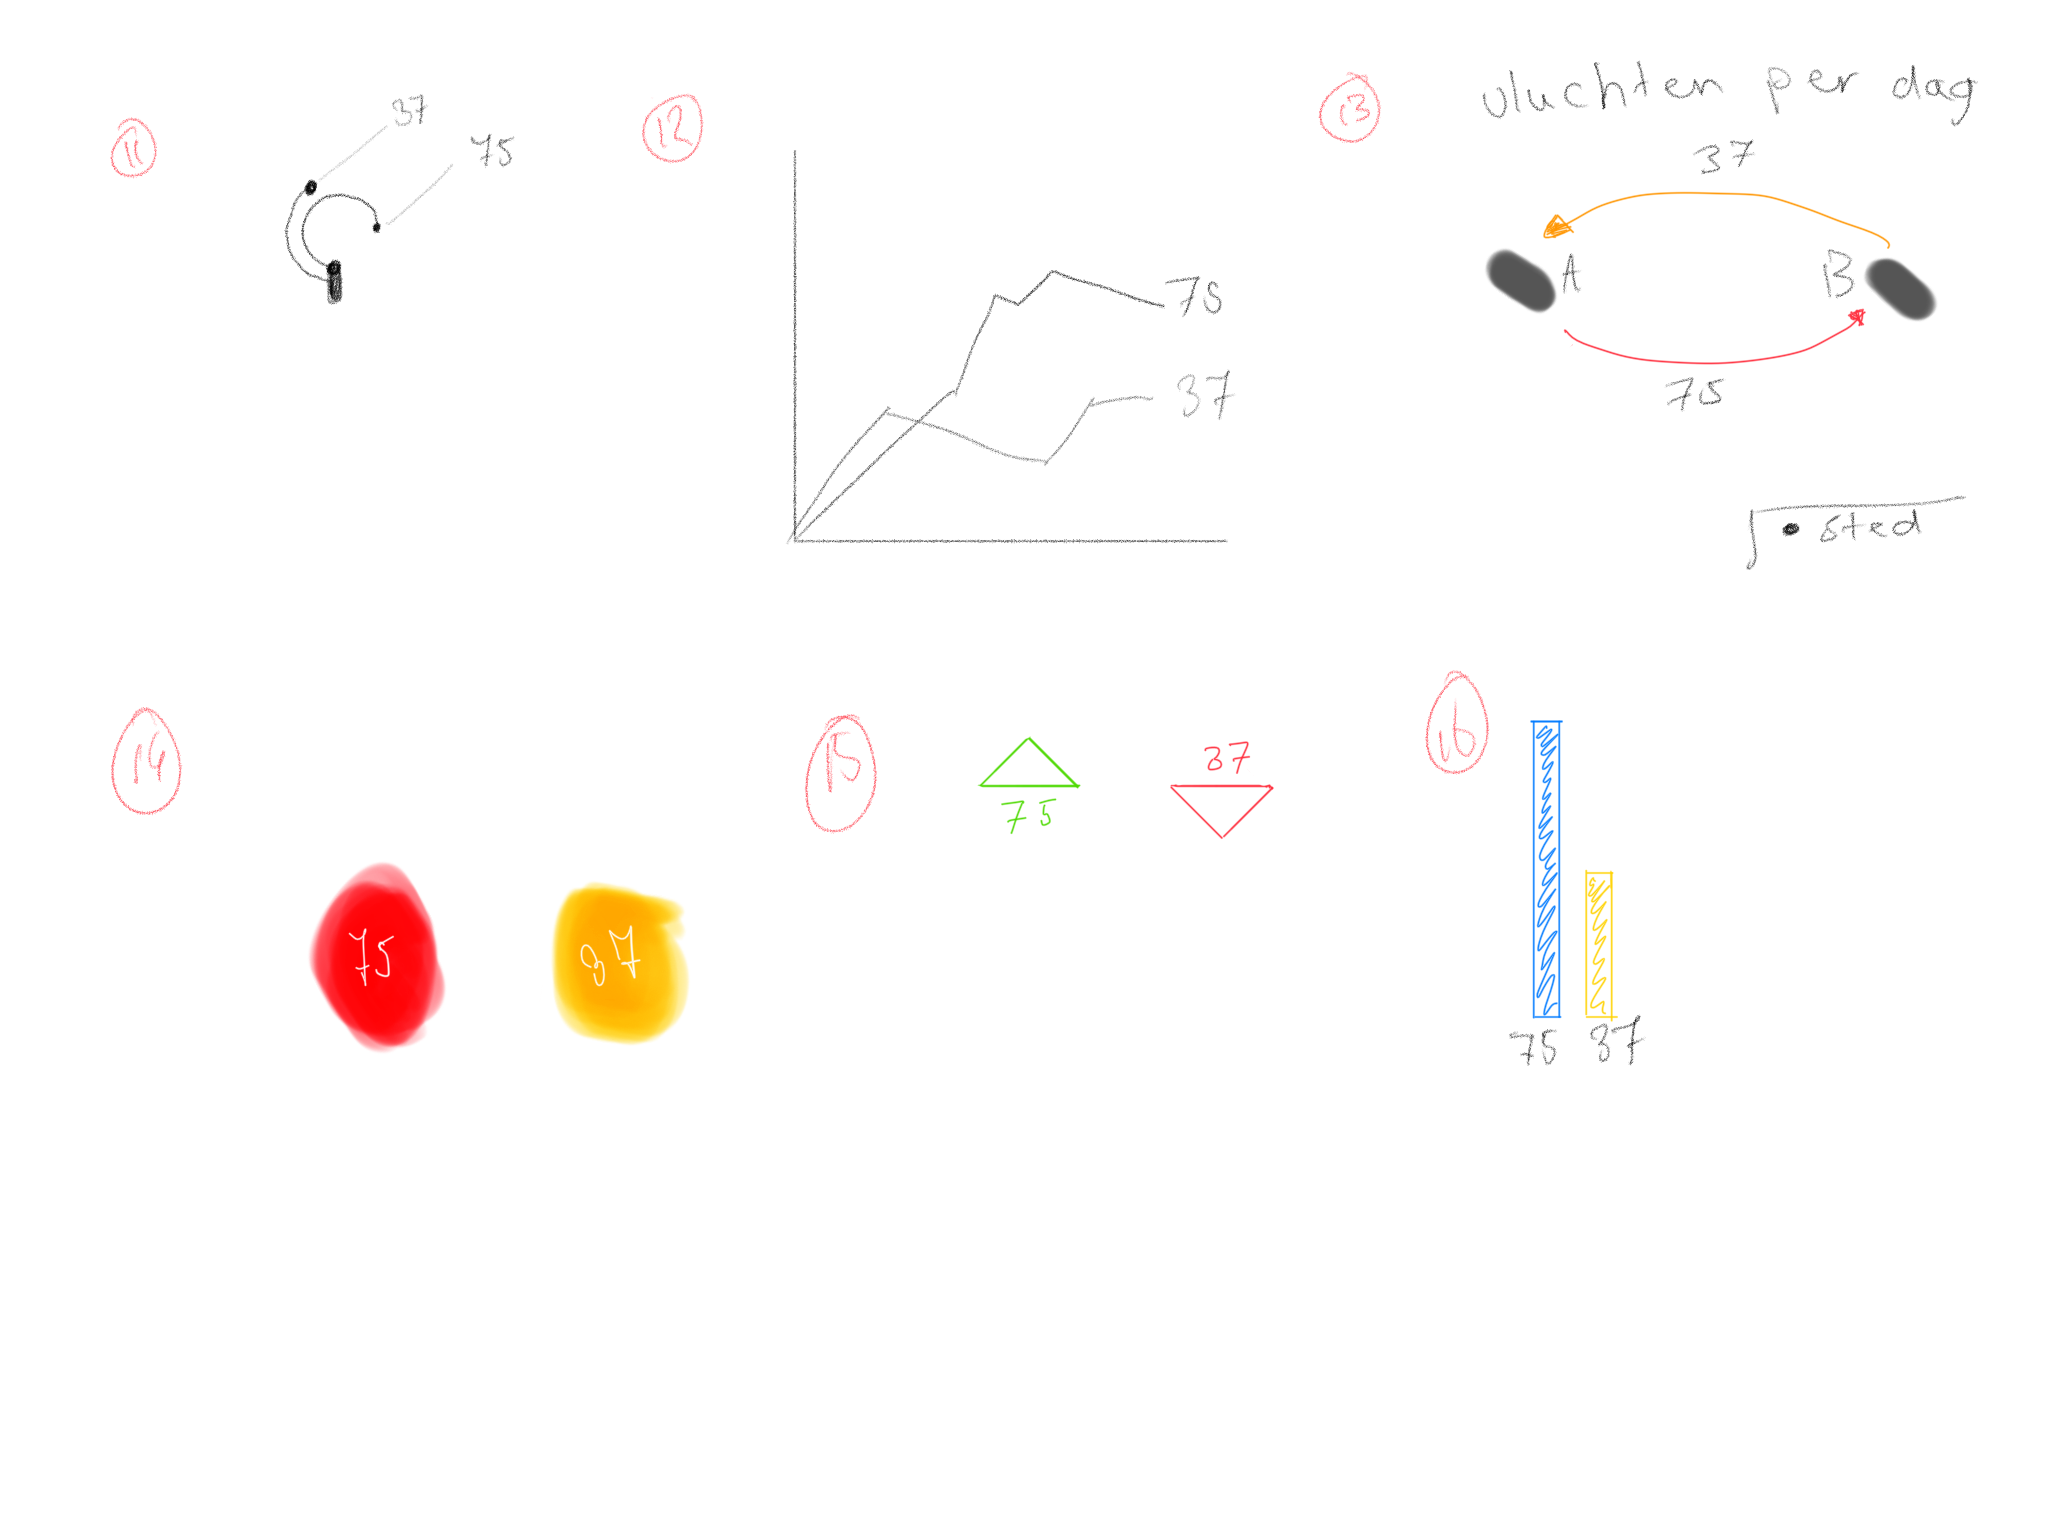 11
37
75
12
75
37
13
vluchten per dag
37
A
B
75
sted
14
75
37
15
75
37
16
75
37